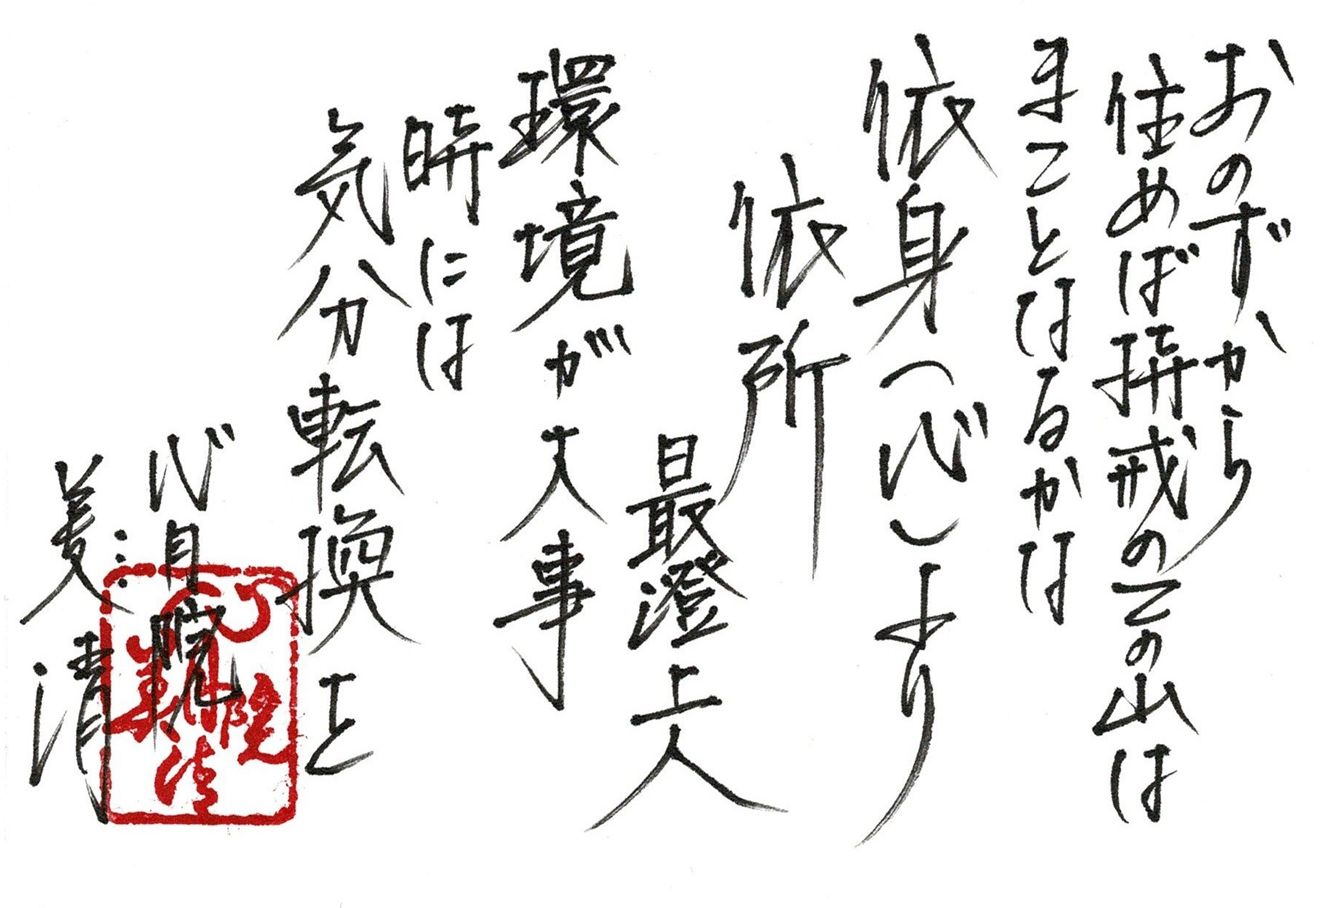 おのずから
住めば持戒のこの山は
まことなるかな
依身(心)より
依所
最澄上人
環境が大事
時には
気分転換を
心月院
美清